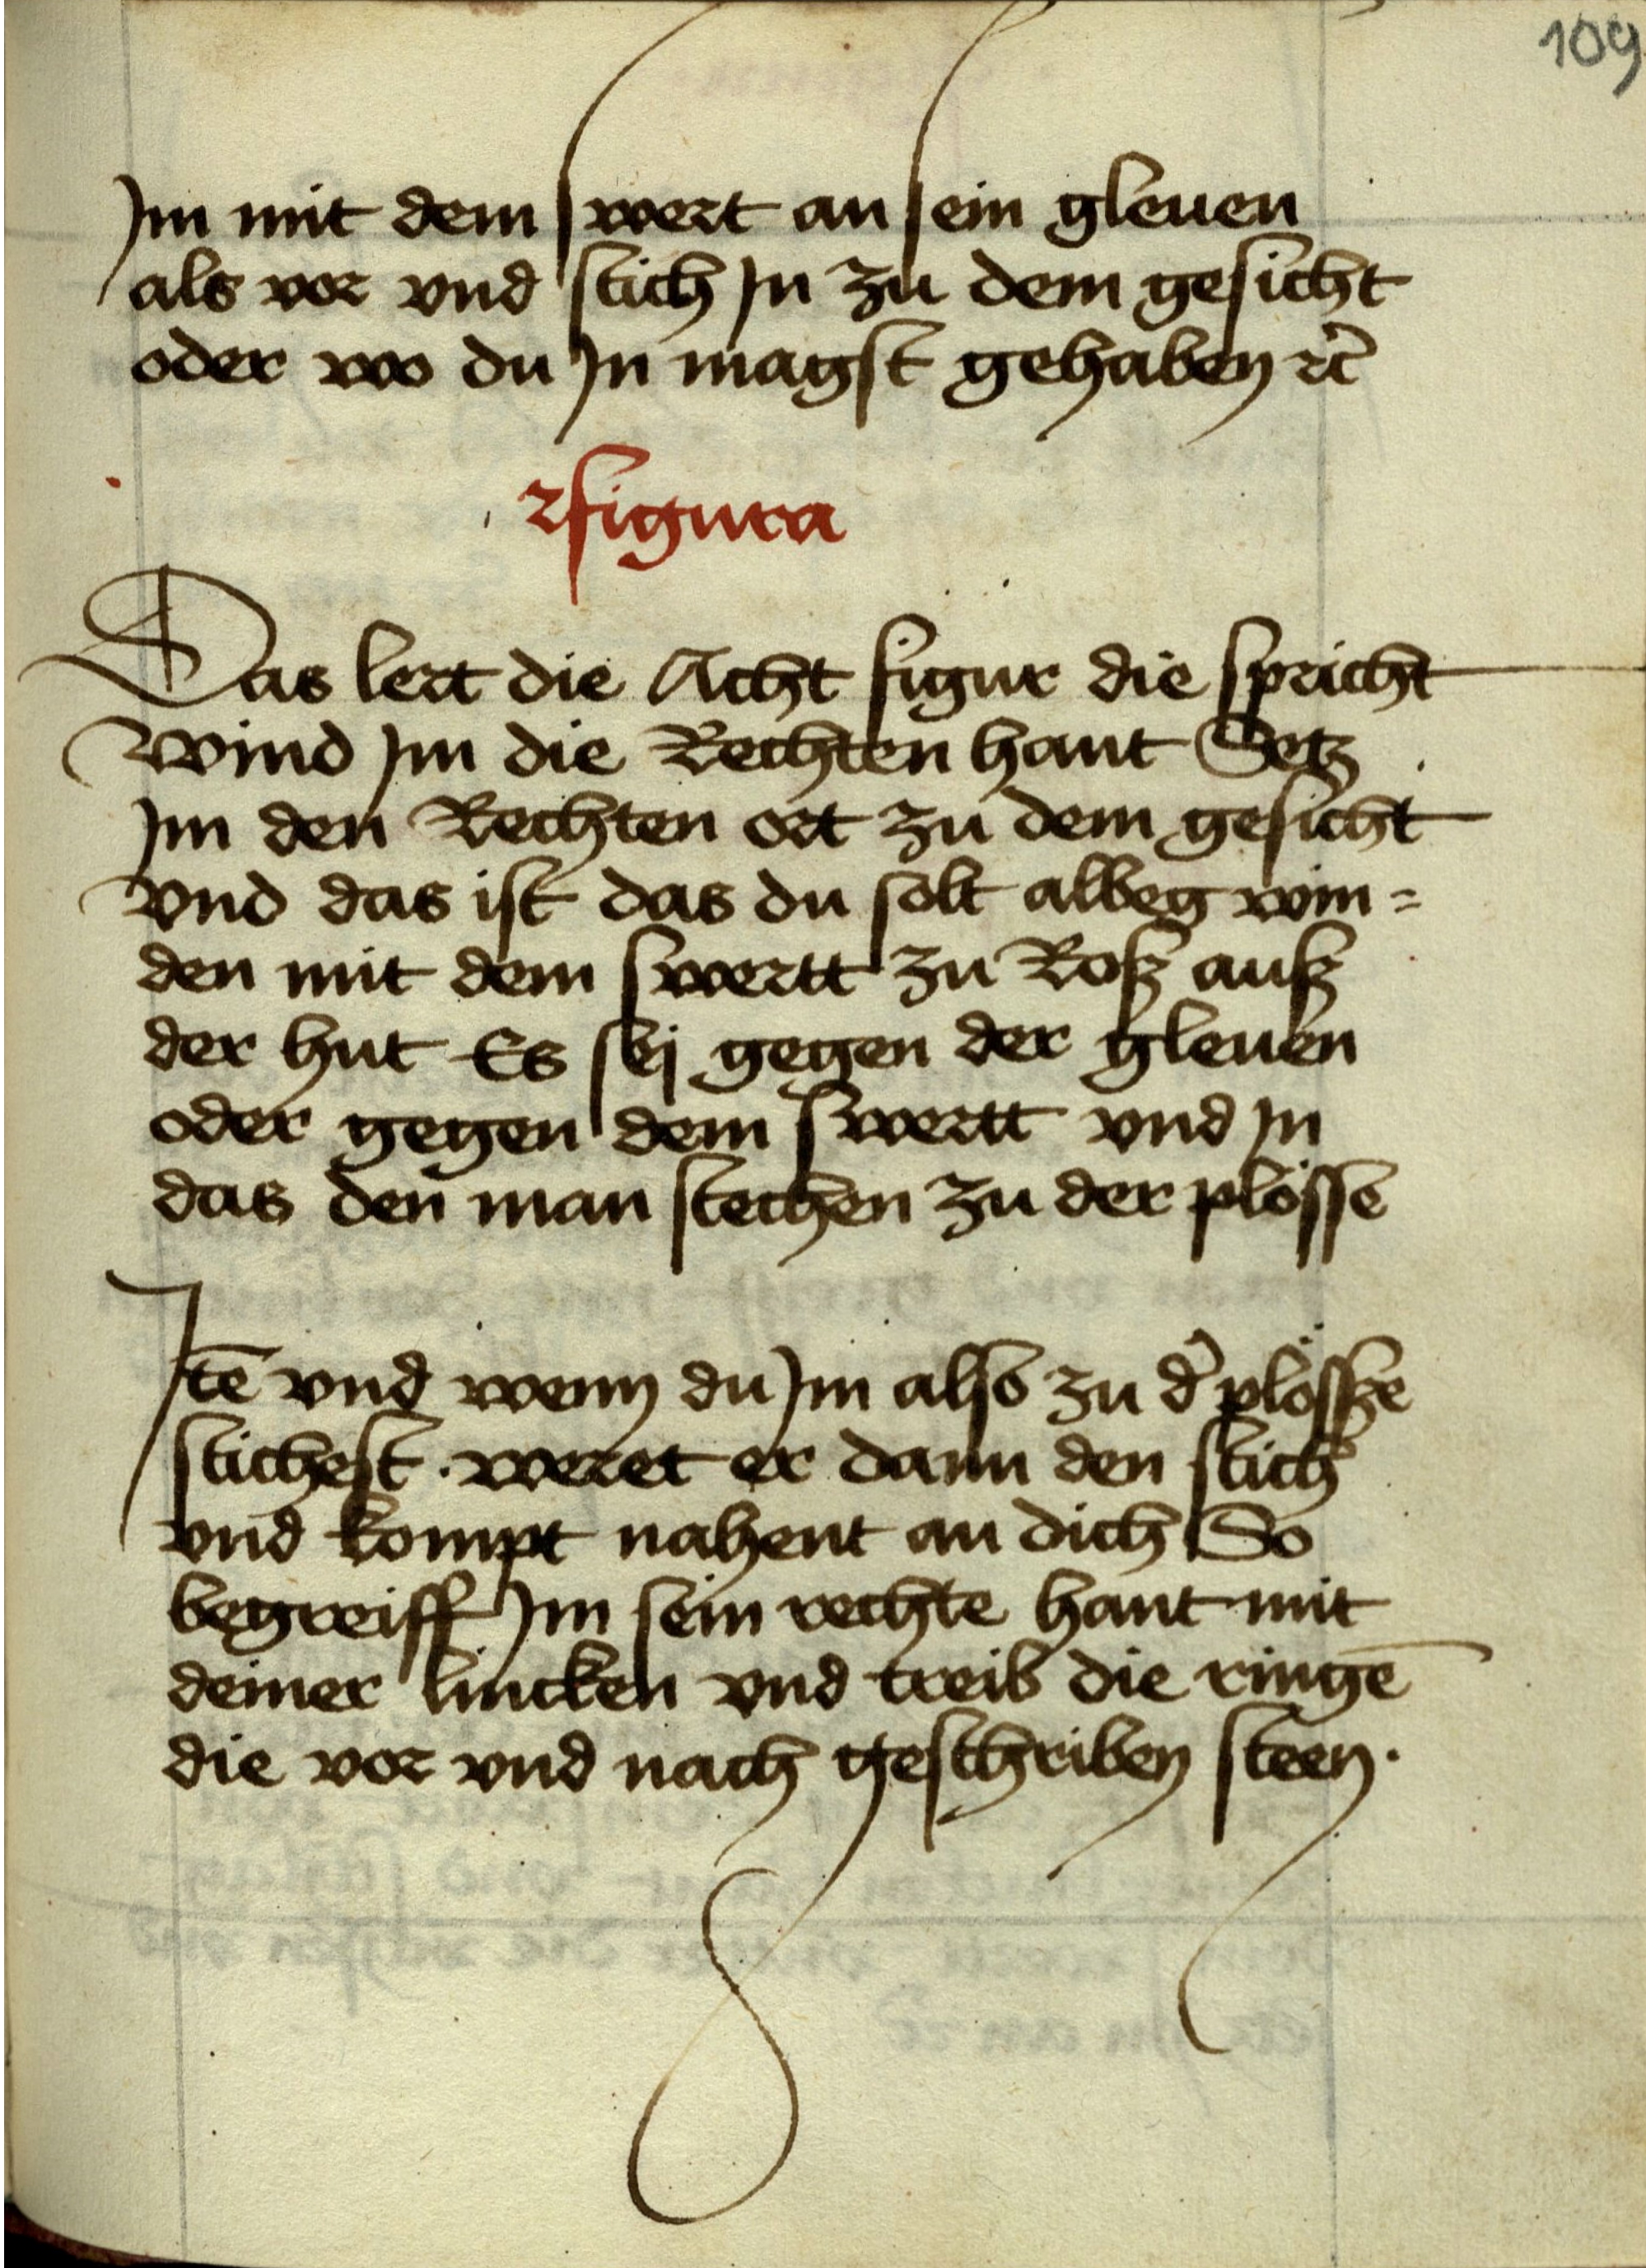 109
Jm mit dem swert an sein gleuen
als vor vnd stich Jn zu dem gesicht
oder wo du Jn magst gehaben ꝛc̃
figura
Das lert die Acht figur die spricht
Wind Jm die Rechten hant Setz
Jm den Rechten ort zu dem gesicht
vnd das ist das du solt albeg win=
den mit dem swertt zu Roß auß
der hut Es sey gegen der gleuen
oder gegen dem swertt vnd Jn
das den man stechen zu der plösse
Jtē vnd wenn du Jm also zu d̕ plösße
stichest · weret er dann den stich
vnd kompt nahent an dich So
begreiff Jm sein rechte hant mit
deiner lincken vnd treib die ringē
die vor vnd nach geschriben steen ·